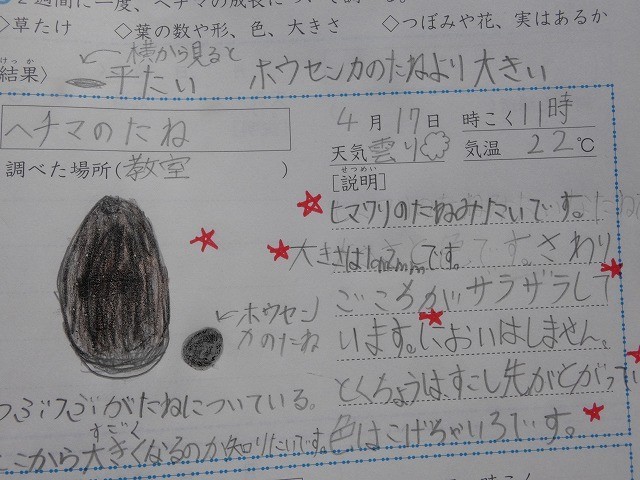 2週間に一度、ヘチマの成長について調べる。
◇草たけ ◇葉の数や形、色、大きさ ◇つぼみや花、実はあるか
横から見ると
けっか
結果〉 平たい ホウセンカのたねより大きい
ヘチマのたね
4月17日 時こく11時
天気 雲り 気温 22℃
調べた場所(教室)
せつめい
[説明]
ヒマワリのたねみたいです。
大きさは1cm2mmです。さわり
ごこちがサラザラして
います。においはしません。
とくちょうは、すこし先がとがってい
色はこげちゃいろです。
ホウセン
カのたね
つぶつぶがたねについている。
すごく
ここから大きくなるのか知りたいです。
時こく